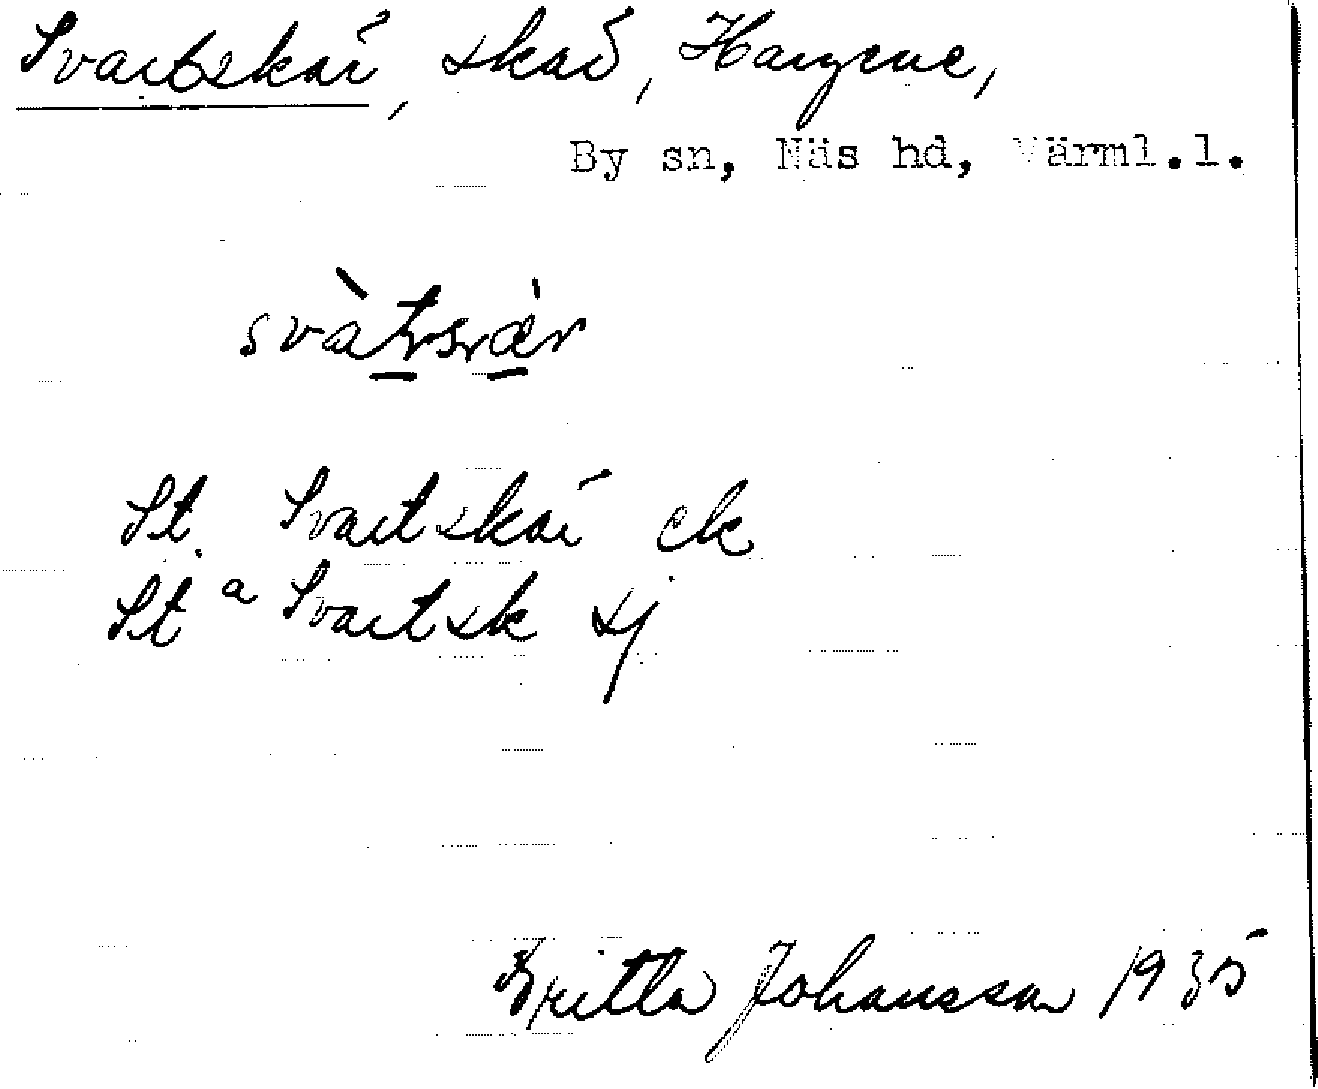 Svartskär, skär, Haryrne,
By sn, Näs hd, Värml.l.
St. Svartskär ek
St a Svartsk sj
Britta Johansson 1935